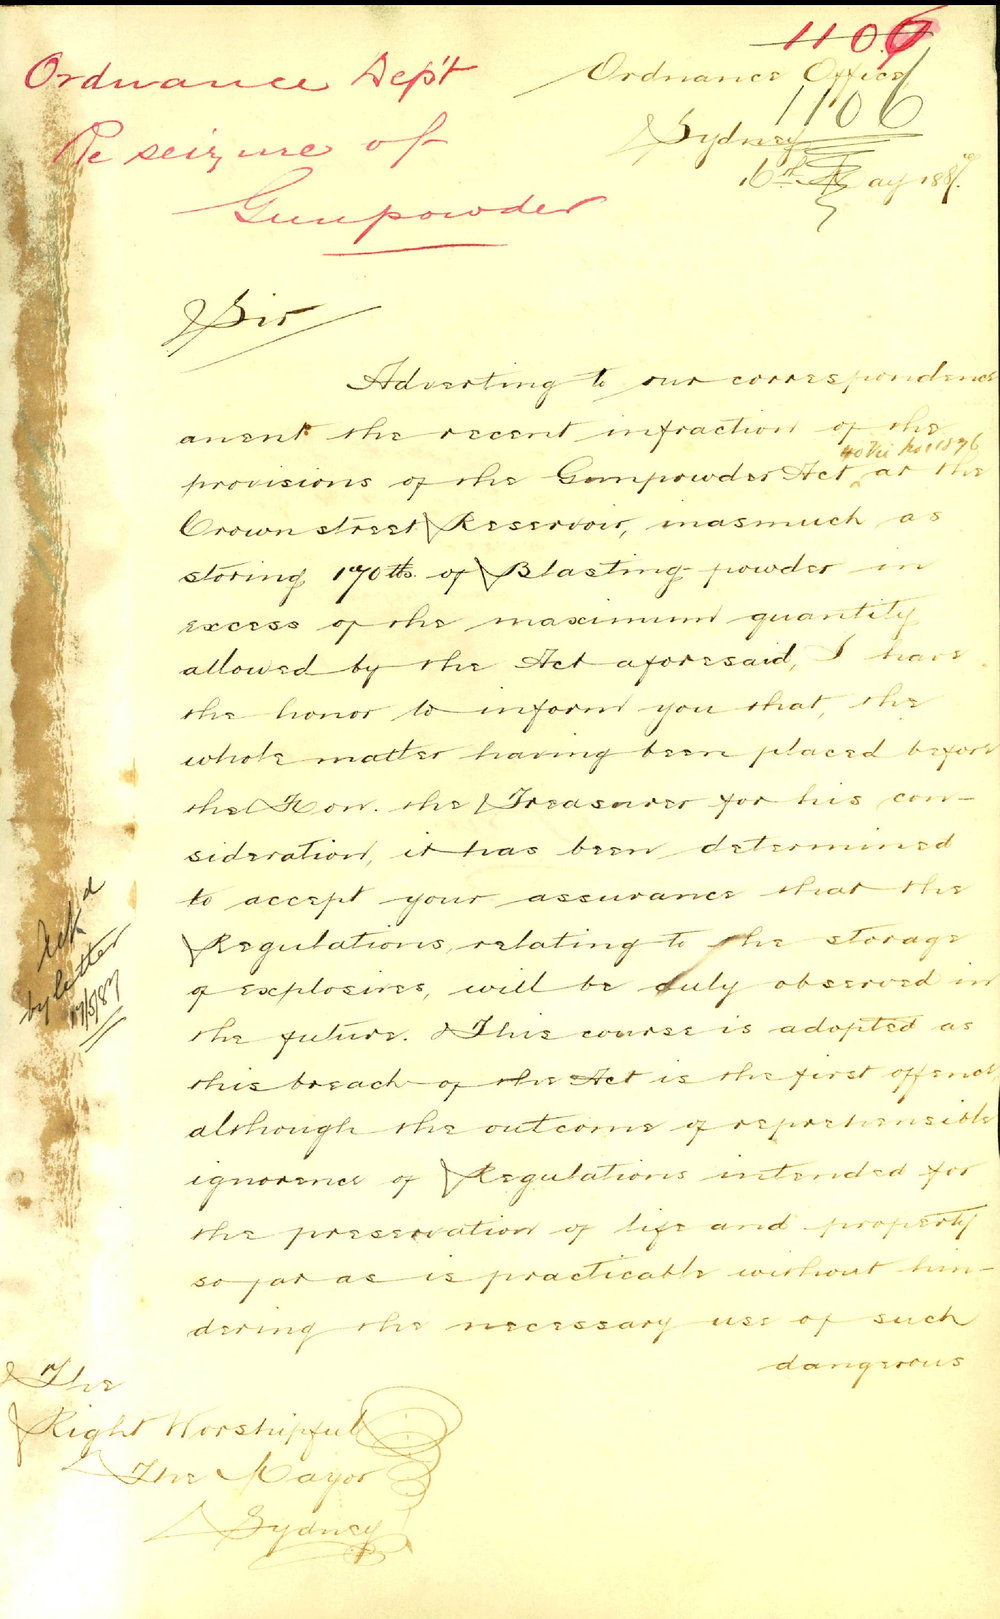 1106
Ordnance Dep't
Re seizure of
Gunpowder
Ordnance Office
1106
Sydney
16th May 1887.
Sir
Adverting to our correspondence
anent the recent infraction of the
provisions of the Gunpowder Act, 40 Vic No 1 1876 at the
Crown street Reservoir, inasmuch as
storing 170 lbs. of Blasting powder in
excess of the maximum quantity
allowed by the Act aforesaid, I have
the honor to inform you that, the
whole matter having been placed before
the Hon. the Treasurer for his con-
sideration, it has been determined
to accept your assurance that the
Regulations, relating to the storage
of explosives, will be duly observed in
the future. This course is adopted as
this breach of the Act is the first offence
although the outcome of reprehensible
ignorence of Regulations intended for
the preservation of life and property
so far as is practicable without hin-
dering the necessary use of such
dangerous
Ack'd
by letter
17/5/87
The
Right Worshipful
The Mayor
Sydney